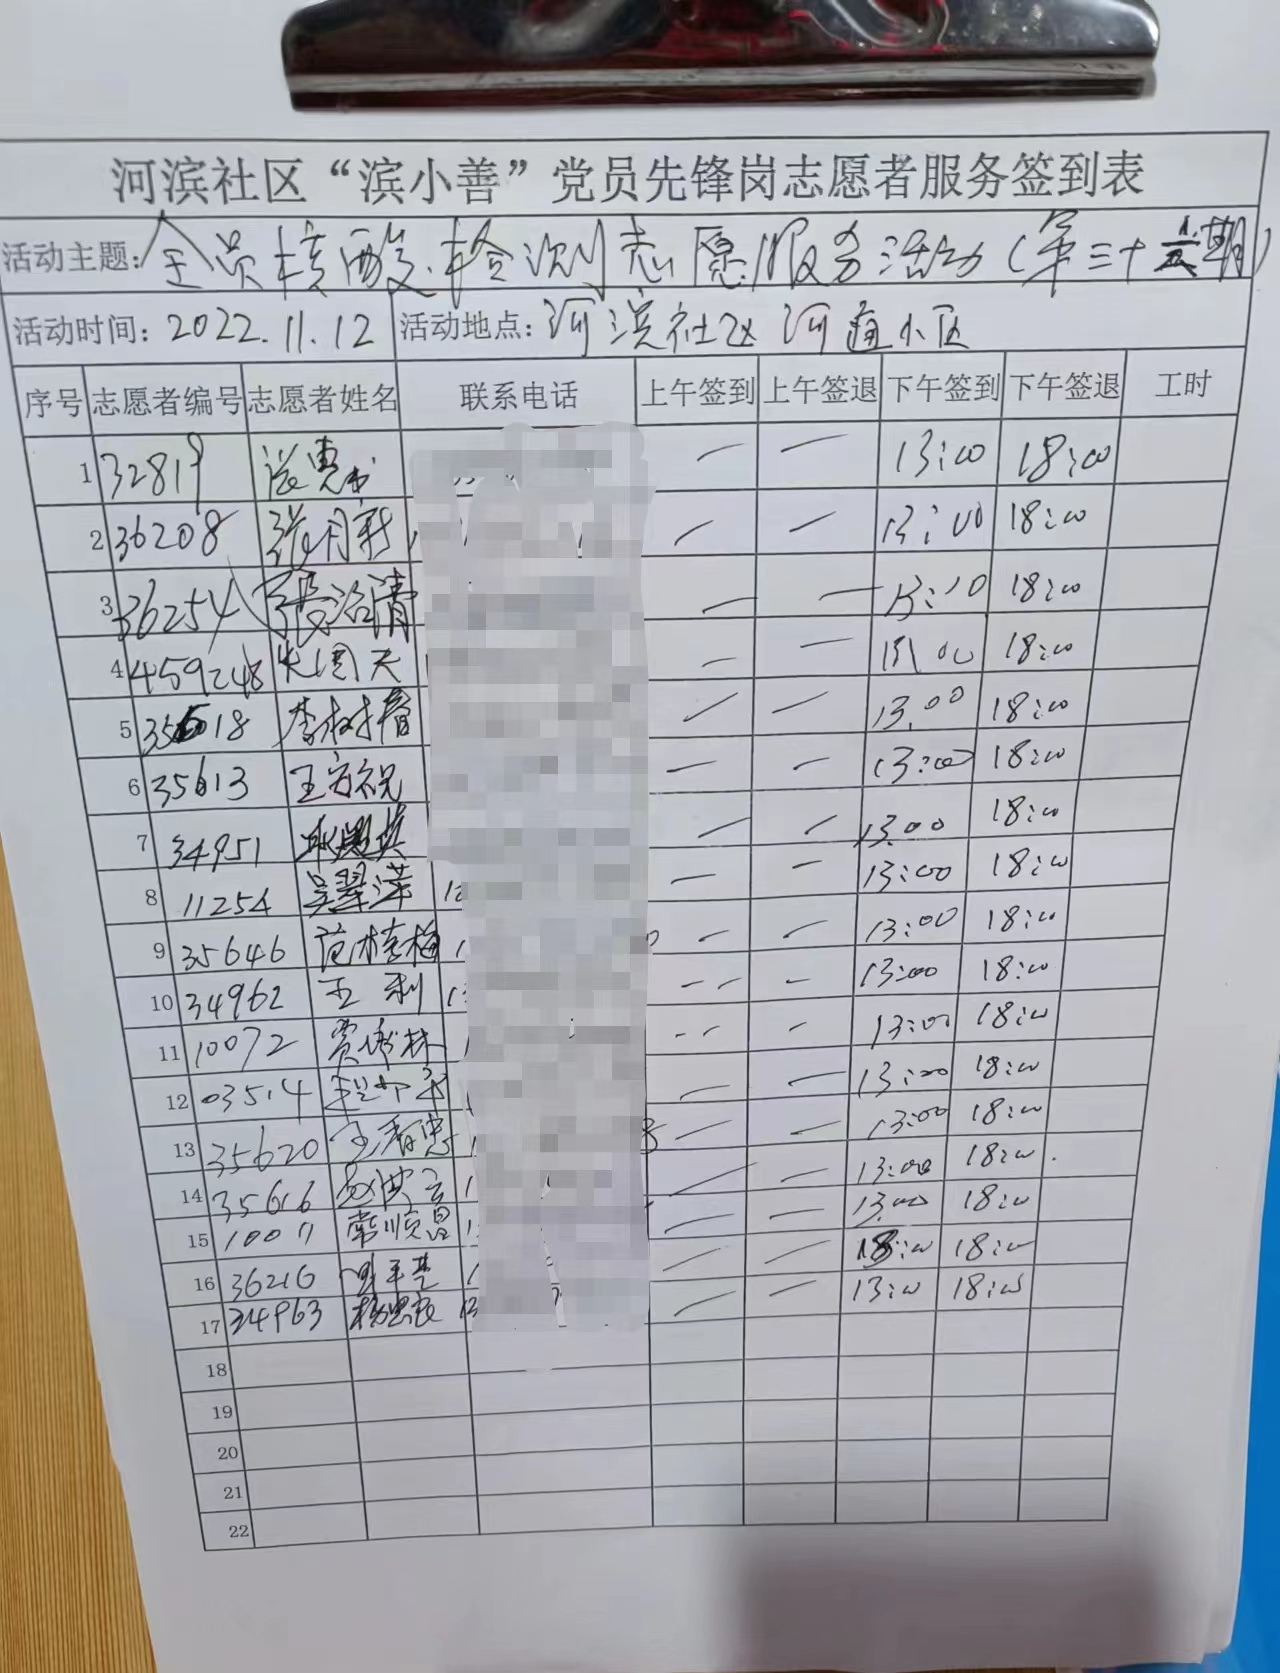 河滨社区“滨小善”党员先锋岗志愿者服务签到表
活动主题：全员核酸检测志愿服务活动（第三十期）
活动时间：2022.11.12 活动地点：河滨社区 河道小区
序号 志愿者编号 志愿者姓名 联系电话 上午签到 上午签退 下午签到 下午签退 工时
1 32819 — — 13:00 18:00
2 36208 张月新 — — 13:00 18:00
3 36254 张治清 — — 13:10 18:00
4 459248 — — 18:00
5 35618 李树春 — — 13.00 18:00
6 35613 王宏祝 — — 13:00 18:00
7 34951 — — 13.00 18:00
8 11254 吴翠萍 — — 13:00 18:00
9 35646 范桂梅 — — 13:00 18:00
10 34962 王利 — — 13:00 18:00
11 10072 贾秀林 — — 13:00 18:00
12 03514 — — 13:00 18:00
13 35620 王春忠 — — 13:00 18:00
14 35616 — — 13:00 18:00
15 10011 常顺昌 — — 13:00 18:00
16 36216 — — 13:00 18:00
17 34963 杨忠良 — — 13:00 18:00
18
19
20
21
22